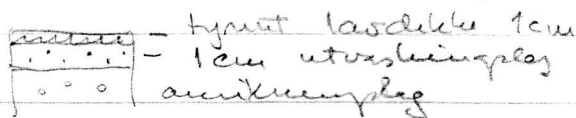 - tynt lavdekke 1cm
- 1cm utvaskingslag
anrikningslag